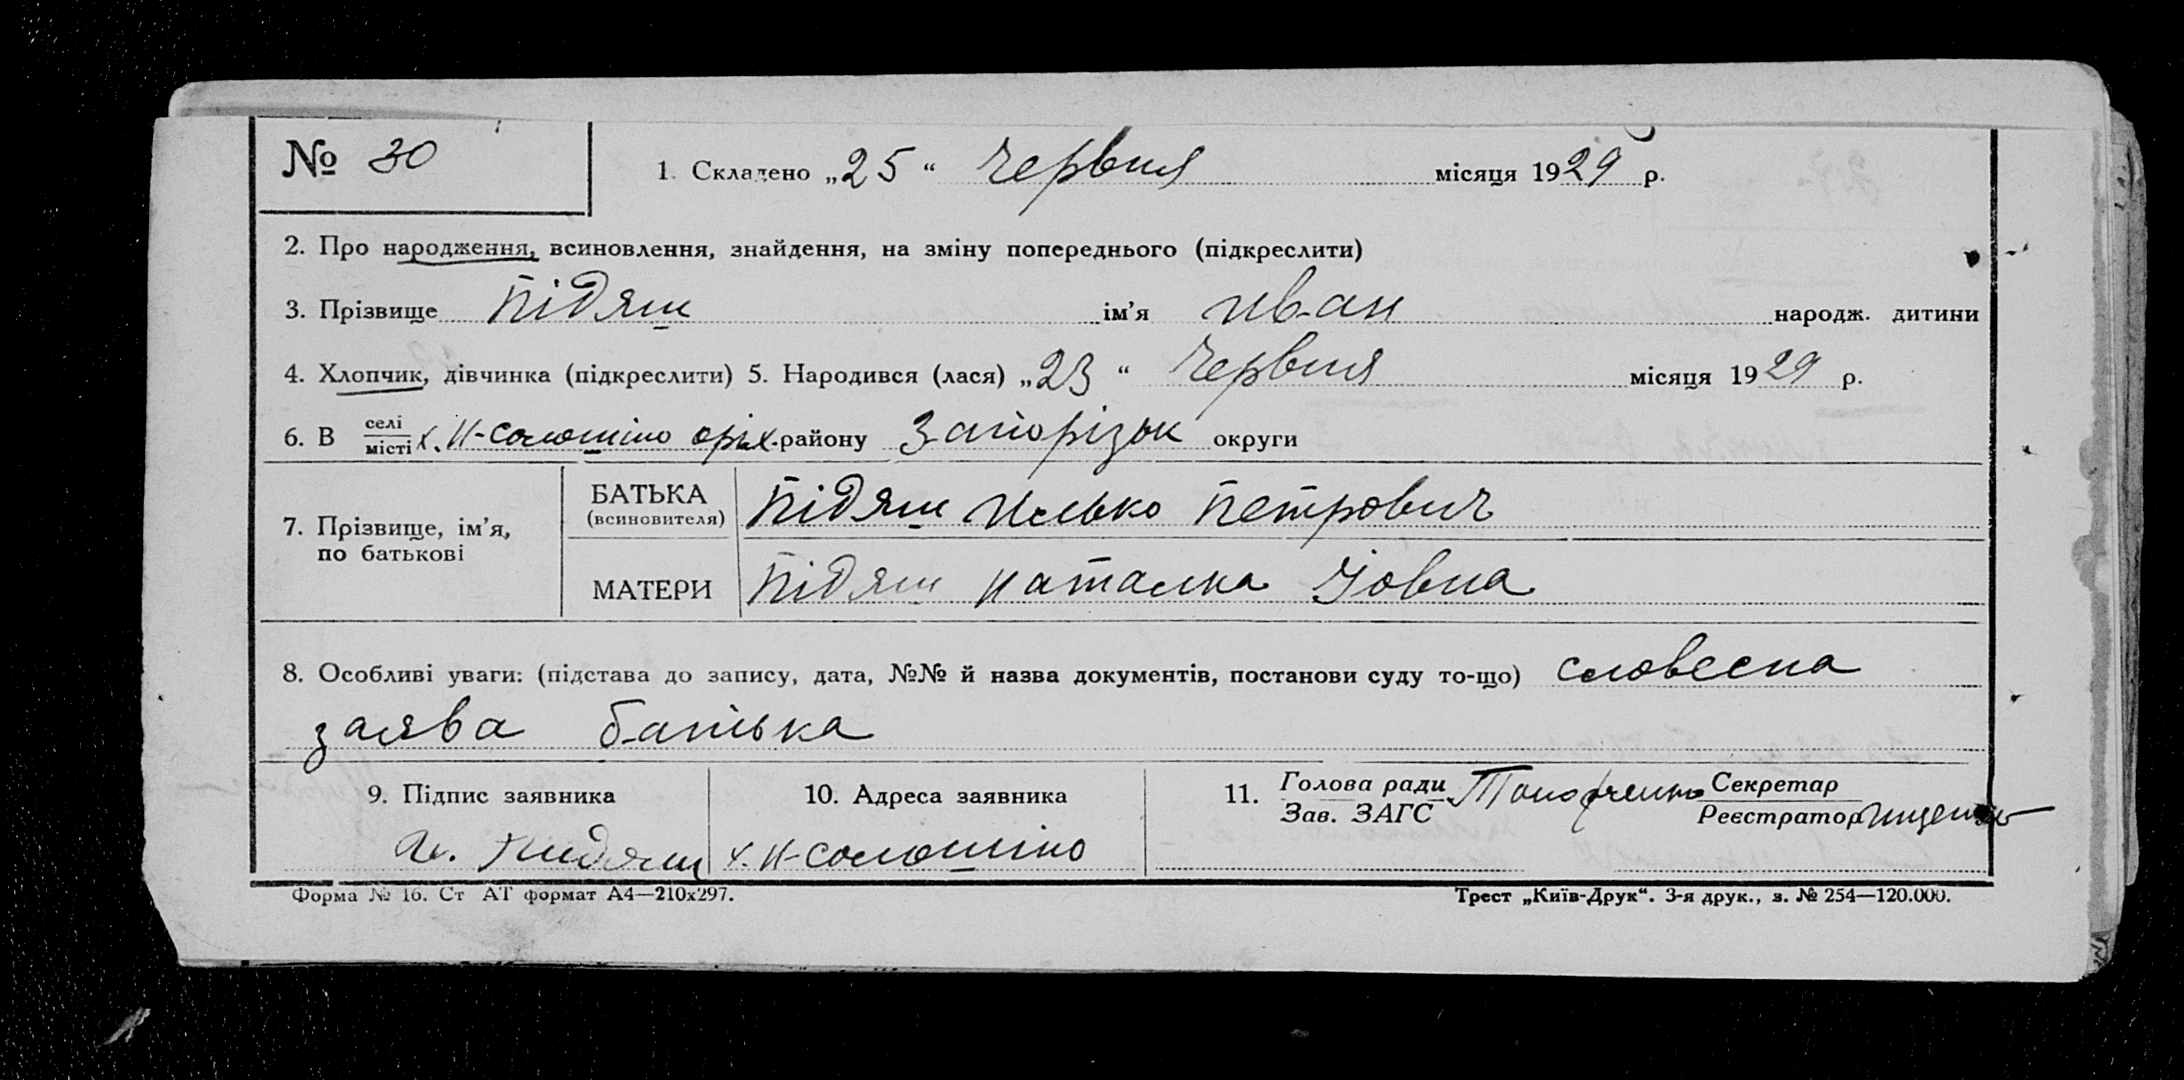 № 30 1. Складено „25“ червня місяця 1929 р.
2. Про народження, всиновлення, знайдення, на зміну попереднього (підкреслити)
3. Прізвище Підяш ім’я Иван народж. дитини
4. Хлопчик, дівчинка (підкреслити) 5. Народився (лася) „23“ Червня місяця 1929 р.
6. В селі місті х. Н-Солошіно оріх. району Запорізьк округи
7. Прізвище, ім’я, по батькові
БАТЬКА (всиновителя) Підяш Илько Петрович
МАТЕРИ Підяш Наталка Йовна
8. Особливі уваги: (підстава до запису, дата, №№ й назва документів, постанови суду то-що) словесна
заява батька
9. Підпис заявника 10. Адреса заявника 11. Голова ради Секретар
Зав. ЗАГС Реєстратор
И. Пидяш х. Н-Солошіно
Форма № 16. Ст АТ формат А4—210х297. Трест „Київ-Друк“. 3-я друк., з. № 254—120.000.